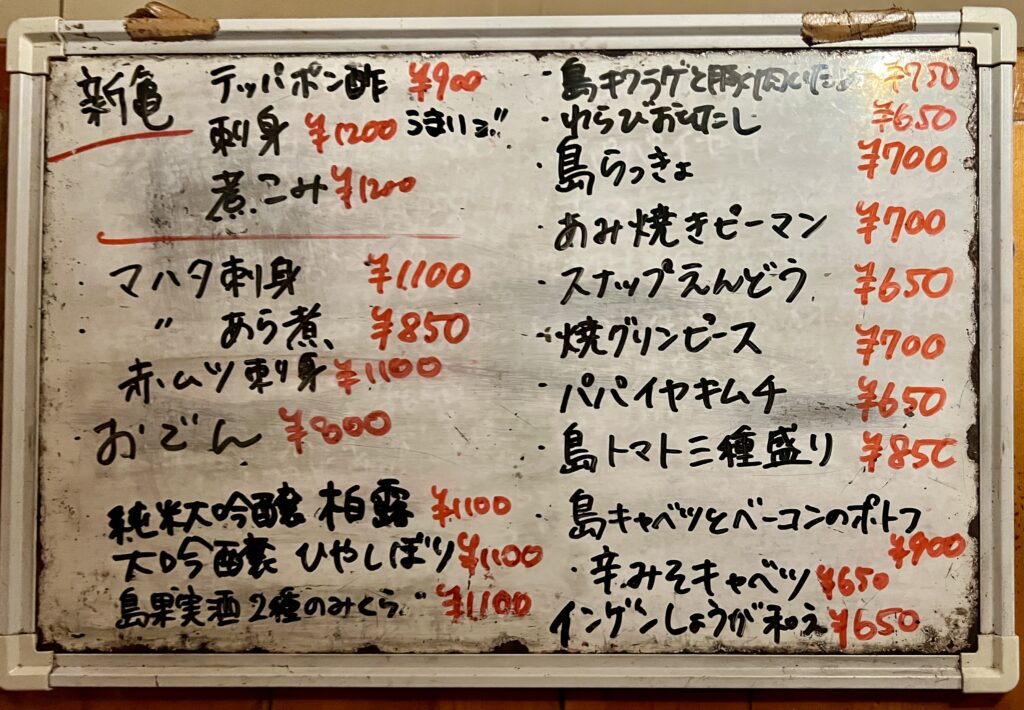 新亀
テッパポン酢 ¥900
刺身 ¥1200 うまいヨ!!
煮こみ ¥1200
マハタ刺身 ¥1,100
・ 〃 あら煮 ¥850
赤ムツ刺身 ¥1100
・おでん ¥800
純米大吟醸 柏露 ¥1100
大吟醸 ひやしぼり ¥1100
島果実酒 2種のみくらべ ¥1100
・島キクラゲと豚肉いため ¥750
・わらびおひたし ¥650
・島らっきょ ¥700
・あみ焼きピーマン ¥700
・スナップえんどう ¥650
・焼グリンピース ¥700
・パパイヤキムチ ¥650
・島トマト三種盛り ¥850
・島キャベツとベーコンのポトフ
¥900
・辛みそキャベツ ¥650
インゲンしょうが和え ¥650